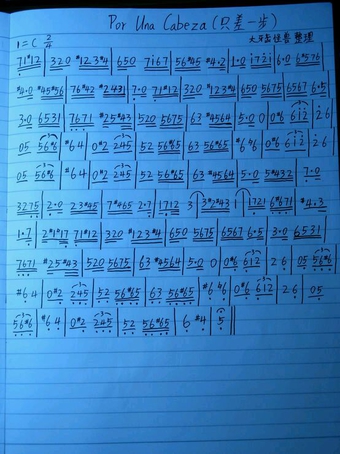 Por Una Cabeza (只差一步)
1=C 2/4 整理
71#12 | 320 #123#4 | 650 7i67 | 56#45 #4.2 | 1.0 | 6.0 6#576
#4.0 #45#56 | 76#42 #2431 | 7.0 71#12 | 320 #123#4 | 650 5675 | 6567 6.5
3.0 6531 | 7671 #25#43 | 520 5675 | 63 #4564 | 5.0 0 | 0#6 612 | 26
05 56#6 | #64 | 0#2 245 | 52 56#65 | 63 56#65 | #6#6 | 0#6 612 | 26
05 56#6 | #64 | 0#2 245 | 52 56#65 | 63 #4564 | 5.0 5#432 | 7.0
3275 | 2.0 23#45 | 7#465 2.7 | 1712 3 | 3#2#43 1 | 1721 6#671 | #4.3
1.7 | 2#1#17 71#12 | 320 #123#4 | 650 5675 | 6567 6.5 | 3.0 6531
7671 #25#43 | 520 5675 | 63 #4564 | 5.0 0 | 0#6 612 | 26 | 05 56#6
#64 | 0#2 245 | 52 56#65 | 63 56#65 | #6#6 | 0#6 612 | 26 | 05
56#6 | #64 | 0#2 245 | 52 56#65 | 6 #4 | 5